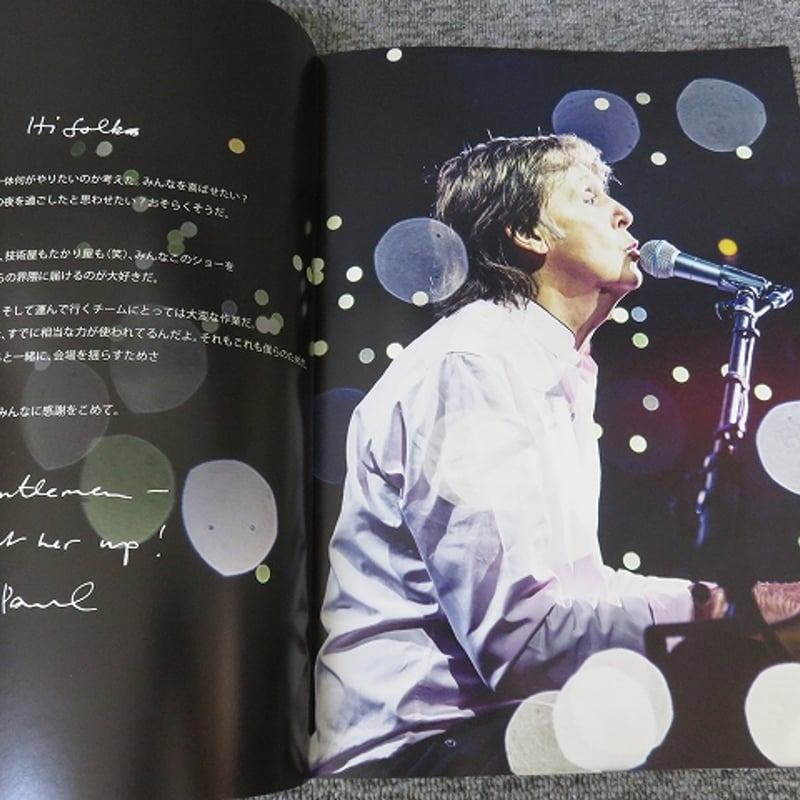 Hi folks
一体何がやりたいのか考えた。みんなを喜ばせたい？
の夜を過ごしたと思わせたい？おそらくそうだ。
、技術屋もたかり屋も（笑）、みんなこのショーを
らの界隈に届けるのが大好きだ。
そして運んで行くチームにとっては大変な作業だ。
、すでに相当な力が使われてるんだよ。それもこれも僕らのためだ。
と一緒に、会場を揺らすためさ
みんなに感謝をこめて。
ntlemen —
t her up!
Paul